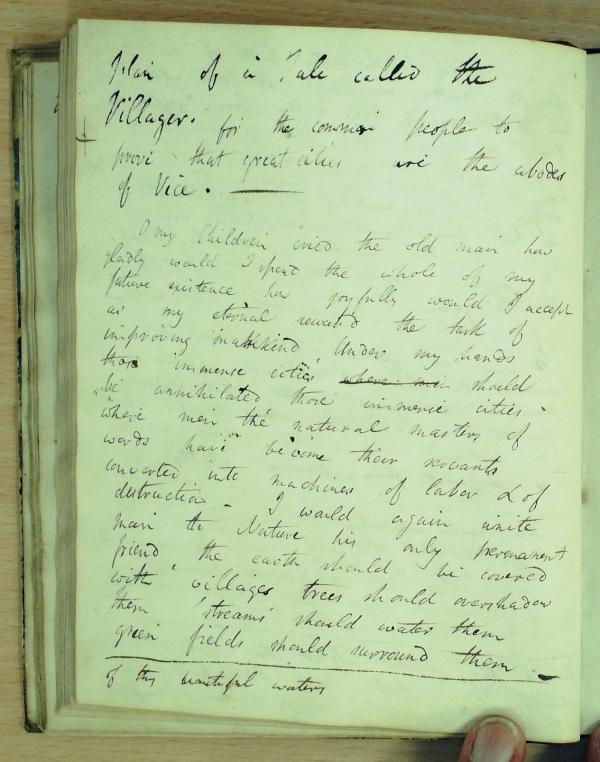 Plan of a Tale called the
Villager. for the common people to
prove that great cities are the abodes
of Vice.
O my Children cried the old man how
gladly would I spend the whole of my
future existence how joyfully would I accept
as my eternal reward the task of
improving mankind. Under my hands
those immense cities where men should
be annihilated those immense cities
where men the natural masters of
words have become their servants
converted into machines of labor & of
destruction - I would again unite
man to Nature his only permanent
friend the earth should be covered
with villages trees should overshadow
them streams should water them
green fields should surround them.
of the beautiful waters